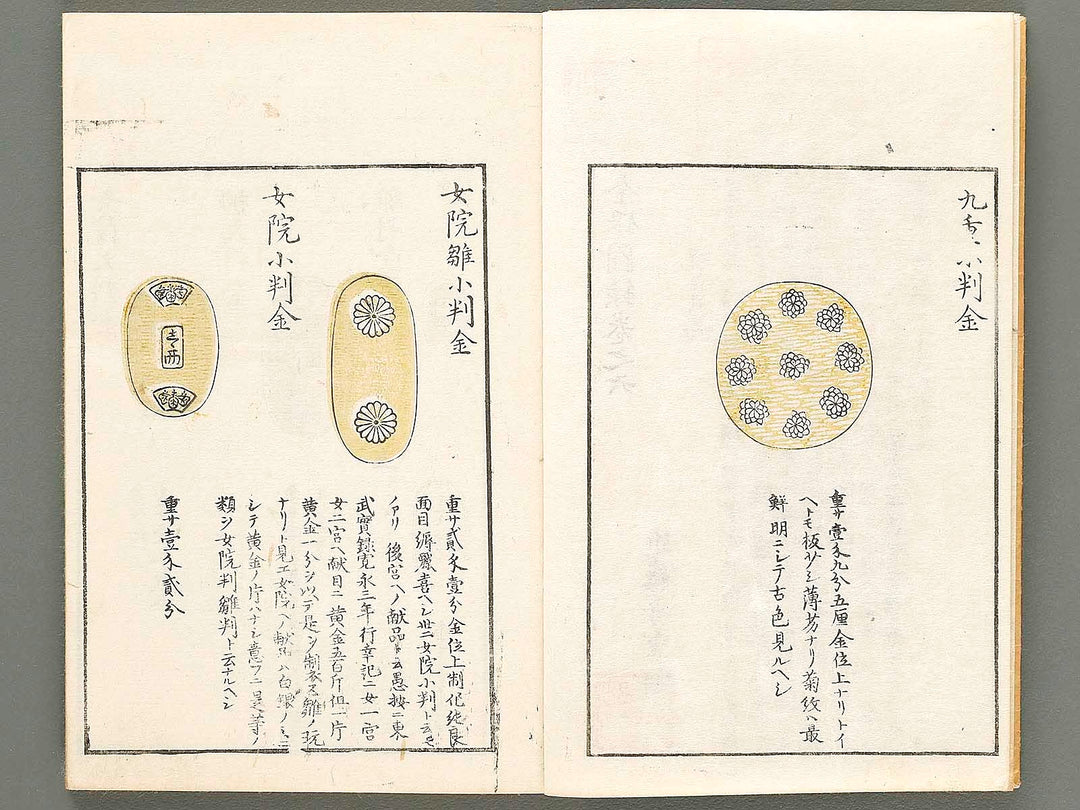 小判金
重サ壹匁九分五厘金位上ナリトイ
ヘトモ板少シ薄方ナリ菊紋ハ最
鮮明ニシテ古色見ルヘシ
女院雛小判金
重サ貳匁壹分金位上制作純良
面目 喜ヘシ世ニ女院小判ト云モ
ノアリ後宮ヘノ献品ト云愚按ニ東
武實録寛永三年行幸記ニ女一宮
女二宮ヘ献目ニ黄金五百斤但一斤
黄金一分ヲ以テ是ヲ制 雛ノ玩
ナリト見エ女院ヘノ献品ハ白銀ノミ
シテ黄金ノ片ハナシ意フニ是等ノ
類ヲ女院判雛判ト云ナルヘシ
女院小判金
壱両
重サ壹匁貳分